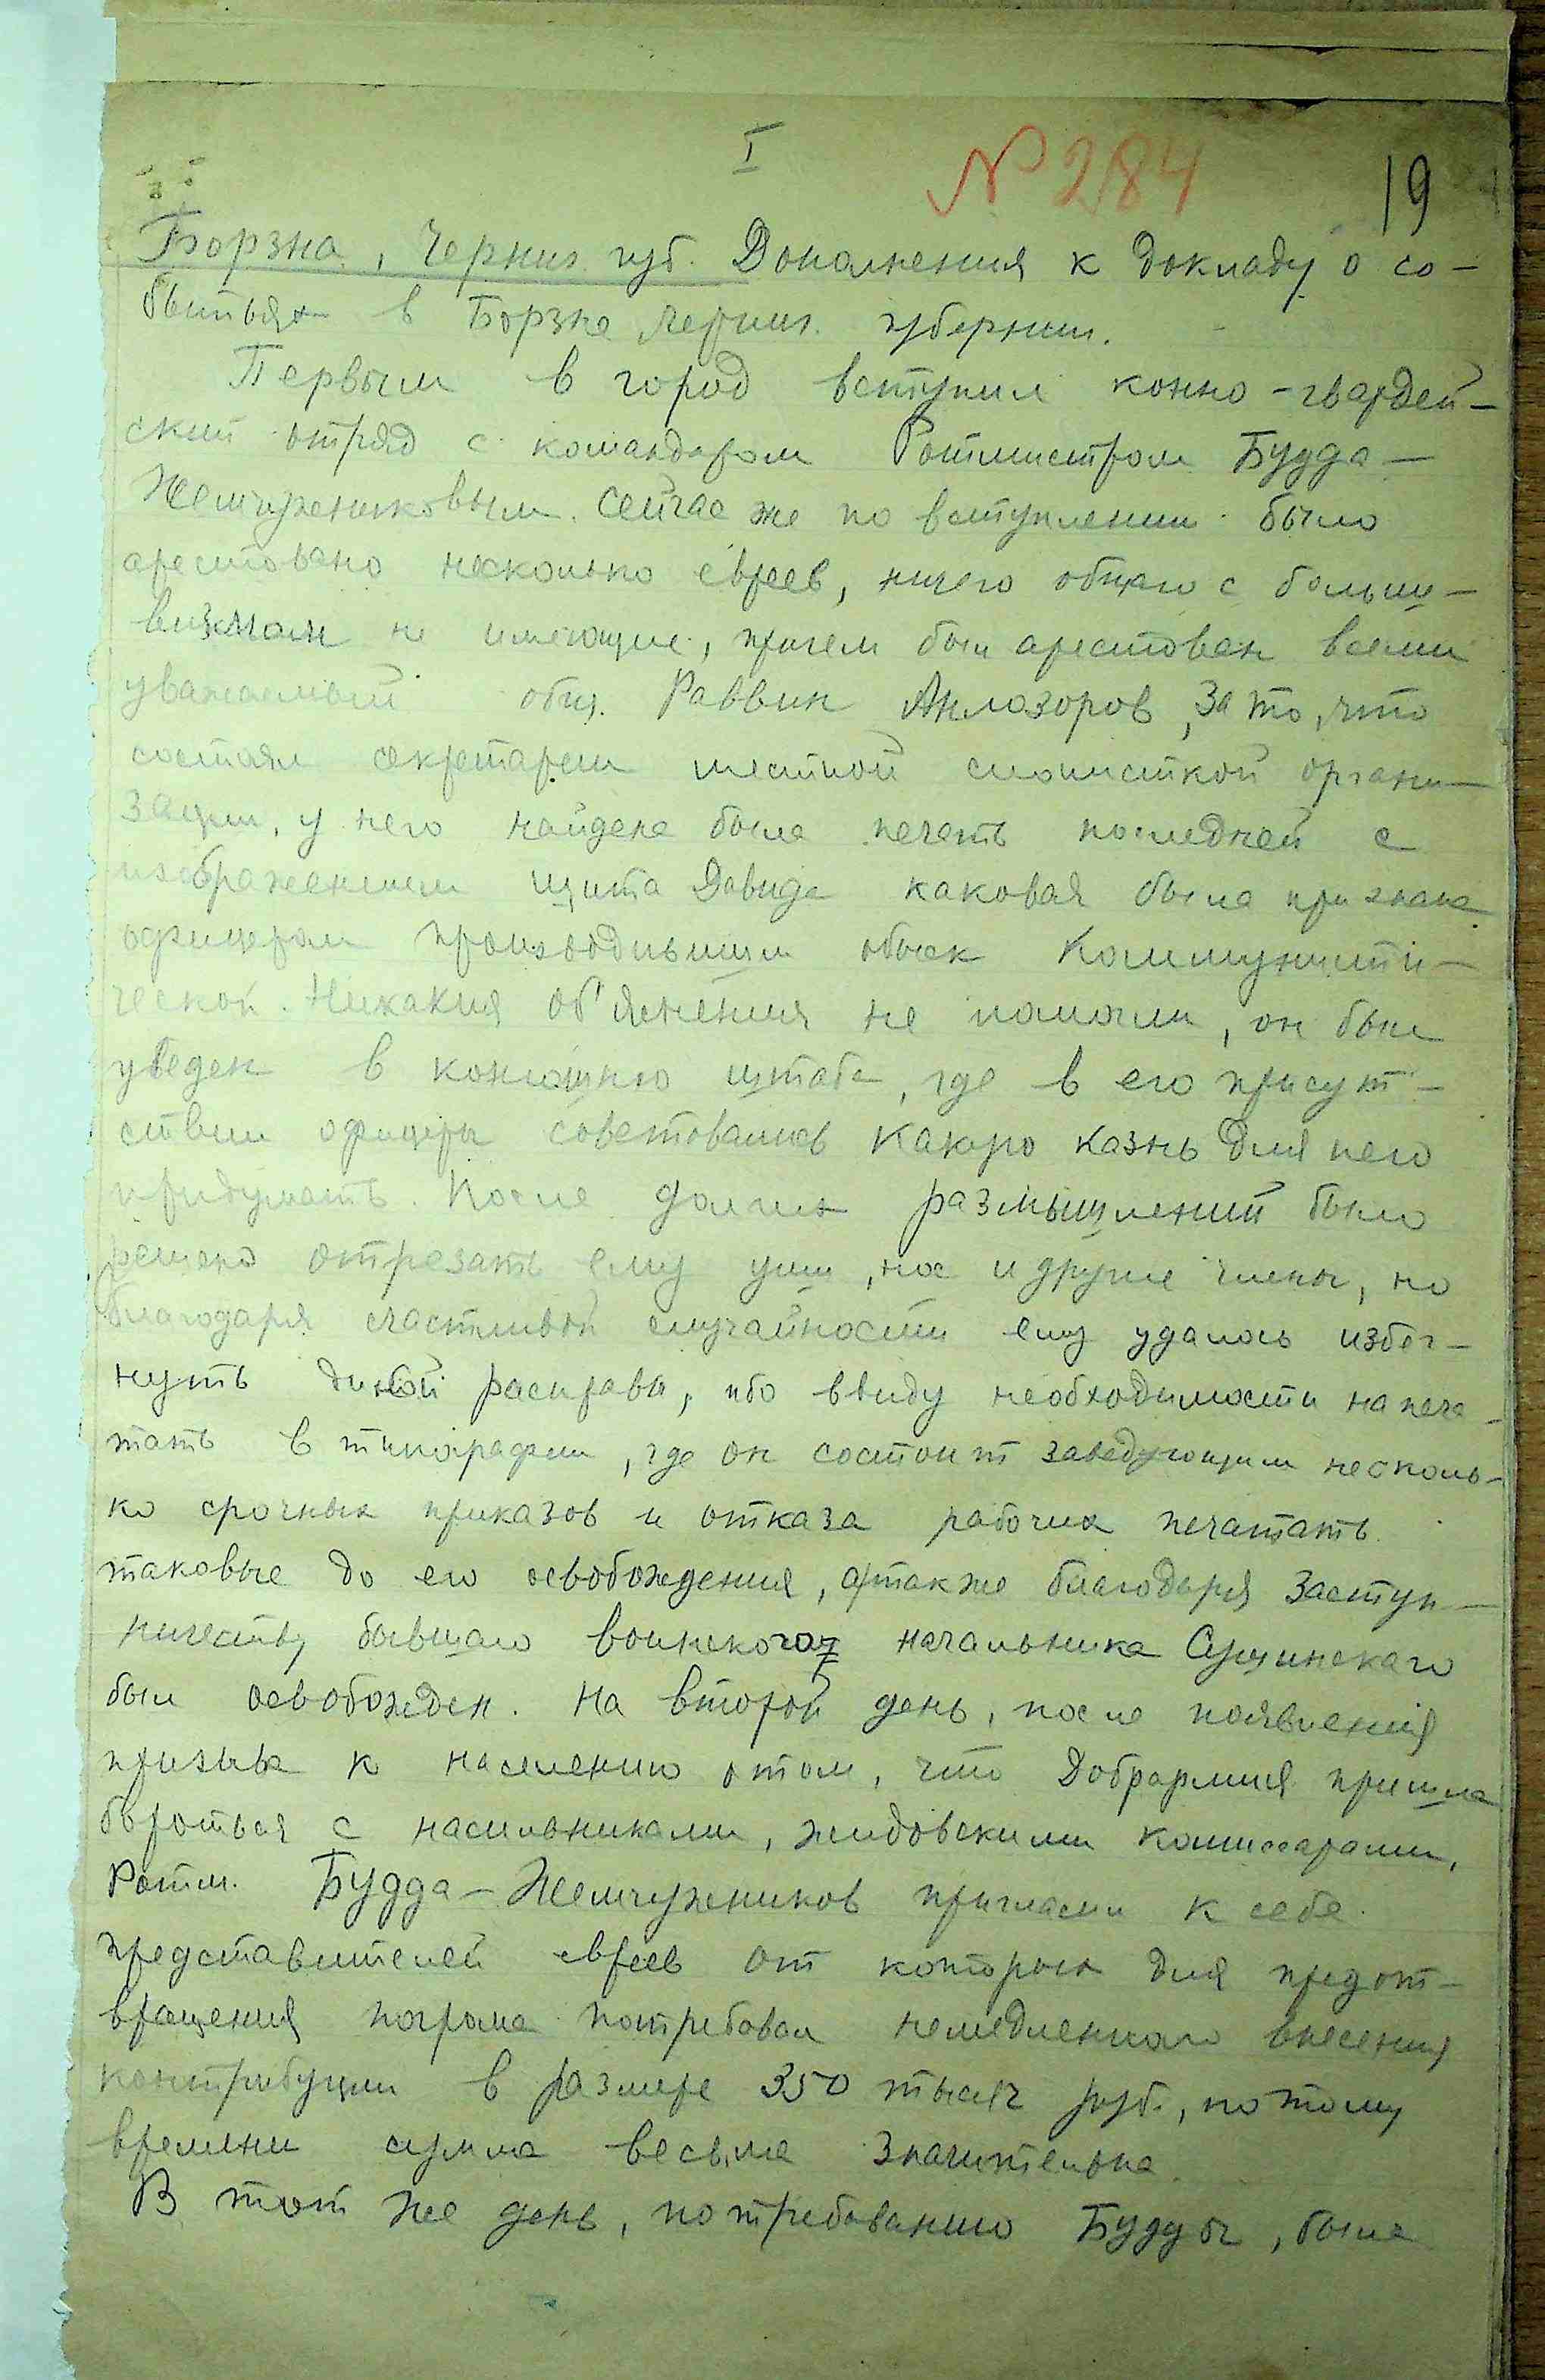 I
№ 284
19
Борзна, Черниг. губ. Дополнения к докладу о со-
бытьях в Борзне Черниг. губернии.
Первым в город вступил конно-гвардей-
ский отряд с командаром Ротмистром Будда-
Жемчужниковым. Сейчас же по вступлении было
арестовано несколько евреев, ничего общаго с больше-
визмом не имеющие, причем был арестован всеми
уважаемый общ. Раввин Анлозоров, за то, что
состоял секретарем местной сионисткой органи-
зации, у него найдена была печать последней с
изображением щита Давида каковая была признана
офицером производившим обыск Коммунисти-
ческой. Никакия об'яснения не помогли, он был
уведен в конюшню штаба, где в его присут-
ствии офицеры советовались какую казнь для него
придумать. После долгих размышлений было
решено отрезать ему уши, нос и другие члены, но
благодаря счастливой случайности ему удалось избег-
нуть дикой расправы, ибо ввиду необходимости напеча-
тать в типографии, где он состоит заведующим несколь-
ко срочных приказов и отказа рабочих печатать
таковые до его освобождения, а также благодаря заступ-
ничеству бывшаго воинского начальника Сущинскаго
был освобожден. На второй день, после появления
призыва к населению о том, что Добрармия пришла
бороться с насильниками, жидовскими комиссарами,
Ротм. Будда-Жемчужников пригласил к себе
представителей евреев от которых для предот-
вращения погрома потребовал немедленнаго внесения
контрибуции в размере 350 тысяч руб., по тому
времени сумма весьма значительна.
В тот же день, по требованию Будды, была